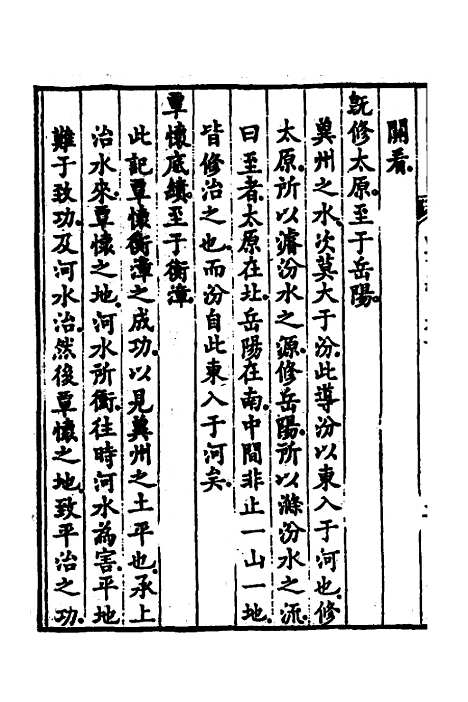 關看
既修太原至于岳陽
冀州之水次莫大于汾此導汾以東入于河也修
太原所以濬汾水之源修岳陽所以滌汾水之流
曰至者太原在北岳陽在南中間非止一山一地
皆修治之也而汾自此東入于河矣
覃懷底績至于衡漳
此記覃懷衡漳之成功以見冀州之土平也承上
治水來覃懷之地河水所衝往時河水為害平地
難于致功及河水治然後覃懷之地致平治之功